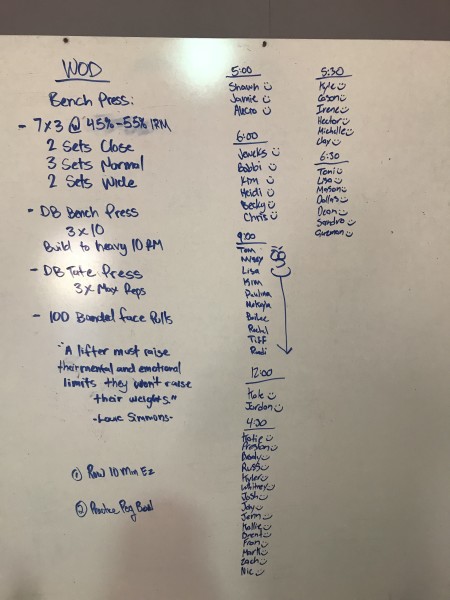 WOD
Bench Press:
- 7x3 @ 45%-55% 1RM
2 Sets Close
3 Sets Normal
2 Sets Wide
- DB Bench Press
3x10
Build to heavy 10 RM
- DB Tate Press
3x Max Reps
- 100 Banded face Pulls
"A lifter must raise
their mental and emotional
limits they won't raise
their weights"
-Louie Simmons-
① Row 10 Min Ez
② Practice Peg Board
5:00
Shawn
Jamie
Alecro
6:00
Jewels
Bobbi
Kim
Heidi
Becky
Chris
9:00
Tom
Missy
Lisa
Kim
Paulina
Makayla
Bailee
Rachel
Tiff
Rudi
12:00
Kate
Jordan
4:30
Katie
Preston
Brady
Russ
Kyler
Whitney
Josh
Jay
Jenn
Kallie
Brent
Fran
Mark
Zach
Nic
5:30
Kyle
Cason
Irene
Hector
Michelle
Jax
6:30
Toni
Lisa
Mason
Dallas
Dean
Sandro
Guzman